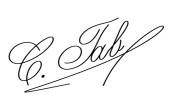 C. Tab